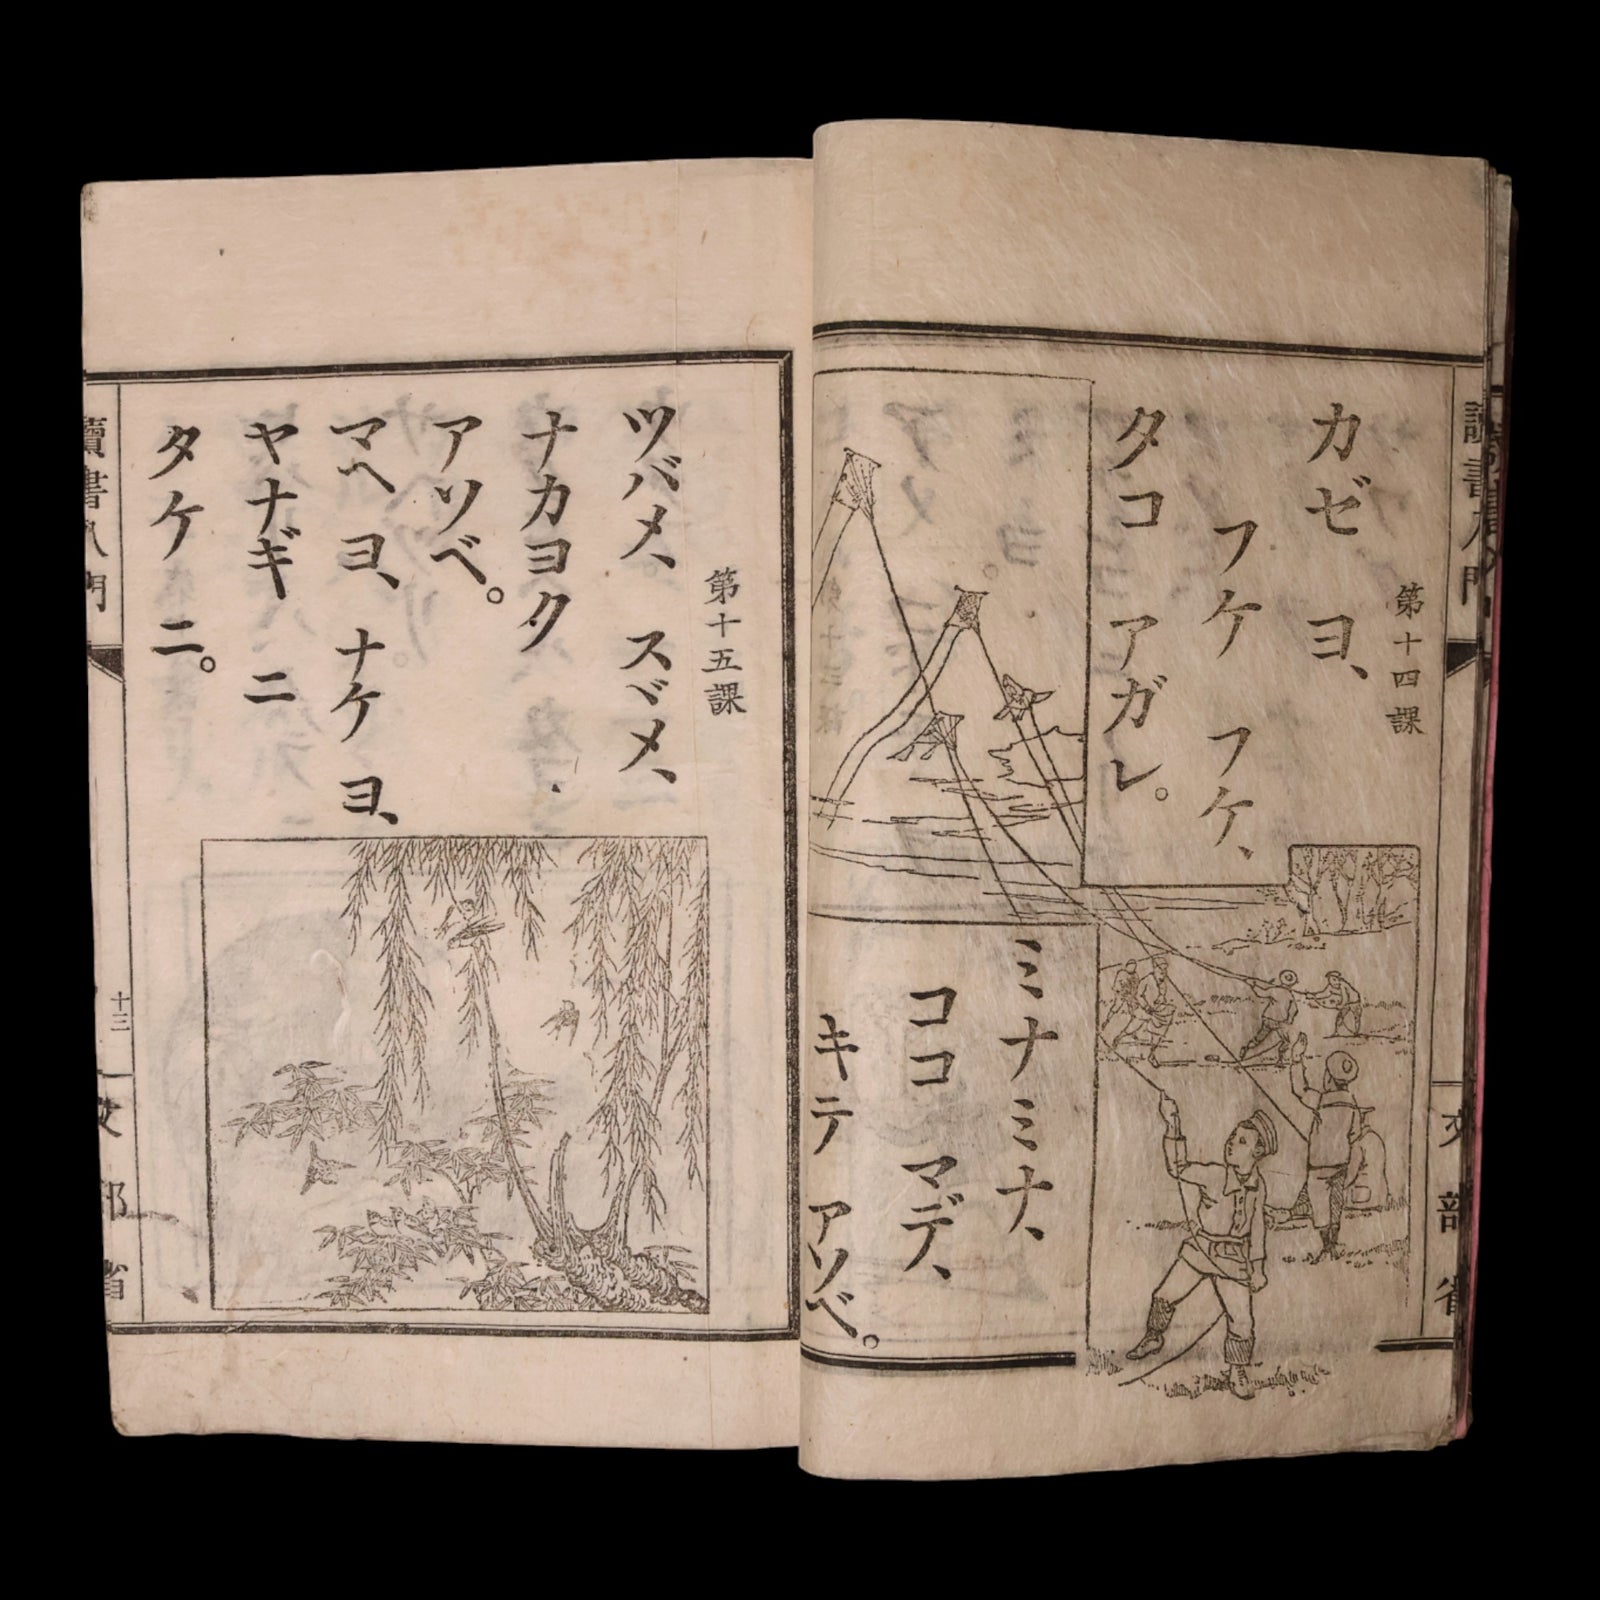 讀書入門
文部省
第十四課
カゼ ヨ、
フケ フケ、
タコ アガレ。
ミナミナ、
ココ マデ、
キテ アソベ。
第十五課
ツバメ、 スヾメ、
ナカヨク
アソベ。
マヘ ヨ、 ナケ ヨ、
ヤナギ ニ
タケ ニ。
讀書入門
十三
文部省